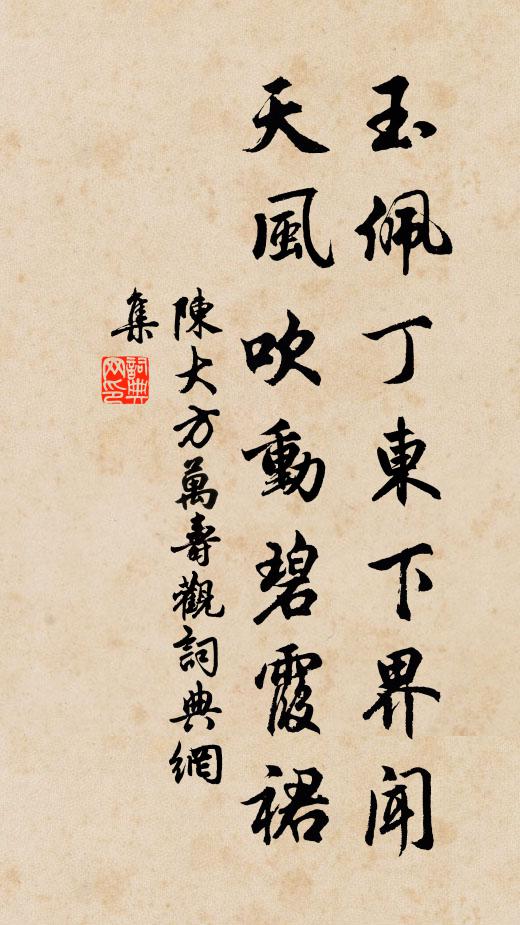 玉佩丁東下界聞
天風吹動碧霞裙
陳大方萬壽觀詞典網
集
詞典
网印